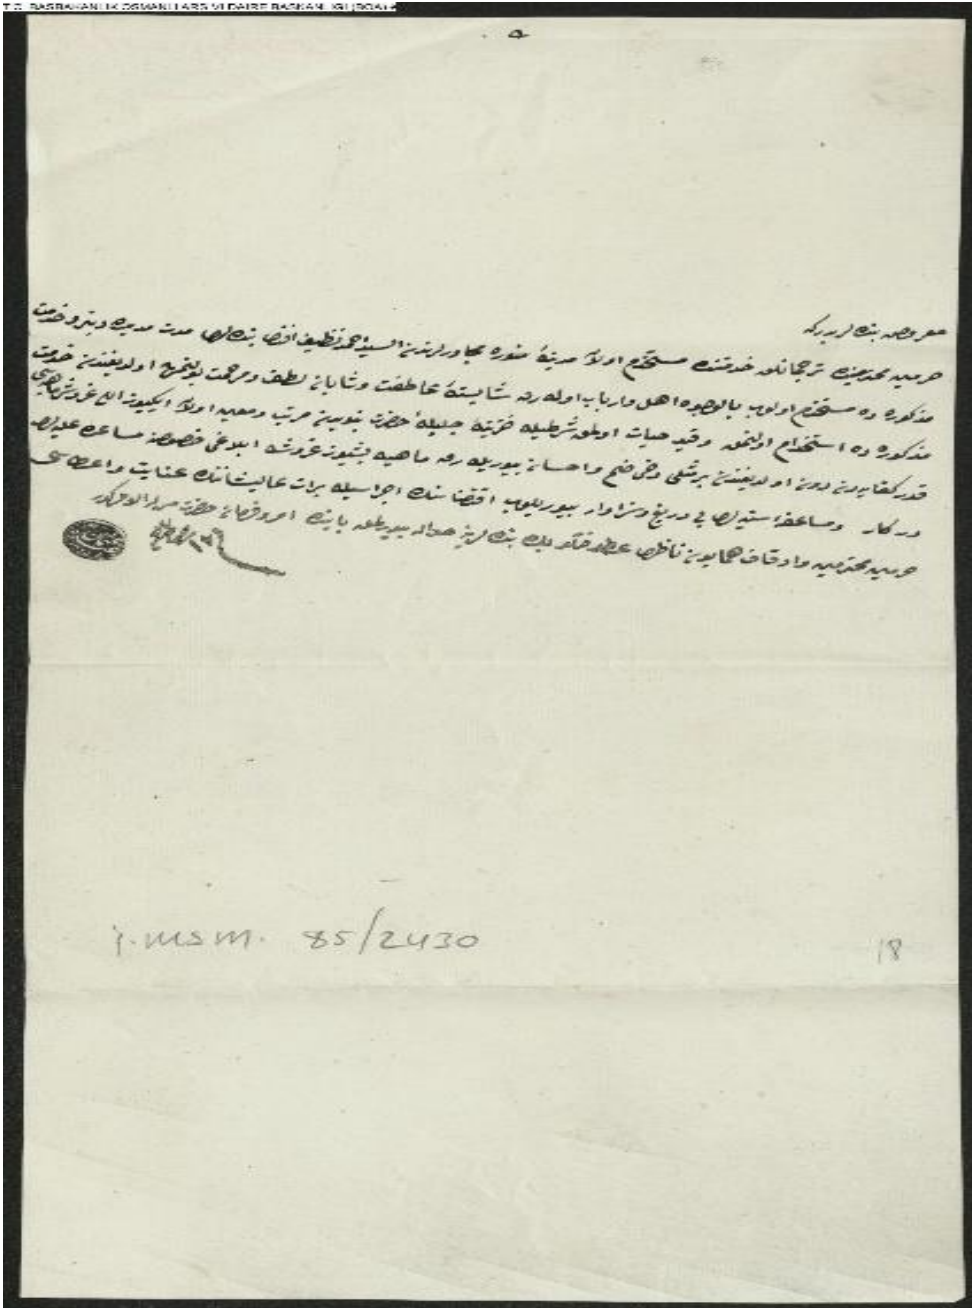 T.C. BAŞBAKANLIK OSMANLI ARŞİVİ DAİRE BAŞKANLIĞI (BOA)
معروض بنده لریدركه
حرمین محترمینده ترجمانلق خدمتنده مستخدم اولان مدینهٔ منوره مجاورلرندن السید احمد نظیف افندی بنده لری مدت مدیده دنبرو خدمت
مذكوره ده مستخدم اولوب بالوجوه اهل وارباب اوله رق شایستهٔ عاطفت وشایان لطف ومرحمت بولنمش اولدیغندن خدمت
مذكوره ده استخدام اولنمق وقید حیات اولمق شرطیله خزینهٔ جلیلهٔ حضرت نبویدن مرتب ومعین اولان ایكیوز اللی غروش ماهیه سی
قدر كفایه دن دون اولدیغندن بر مثلی دخی ضم واحسان بیوریله رق ماهیه بشیوز غروشه ابلاغی خصوصنه مساعده علیه لری
دركار ومساعدهٔ سنیه لری بی دریغ وسزاوار بیوریلوب اقتضاسنك اجراسیله برات عالیشاننك عنایت واعطاسی
حرمین محترمین واوقاف همایون ناظری عطوفتلو بك بنده لرینه حواله بیورلمق بابنده امر وفرمان حضرت من له الامركدر
İ.MSM. 85/2430
18